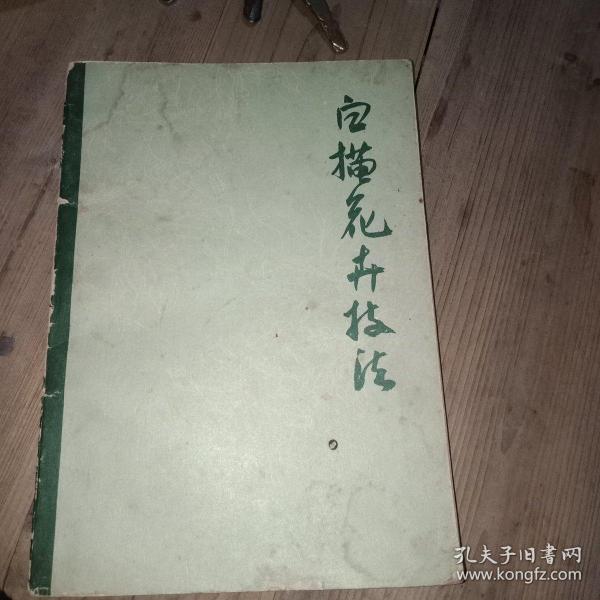 白描花卉技法
孔夫子旧書网
www.kongfz.com